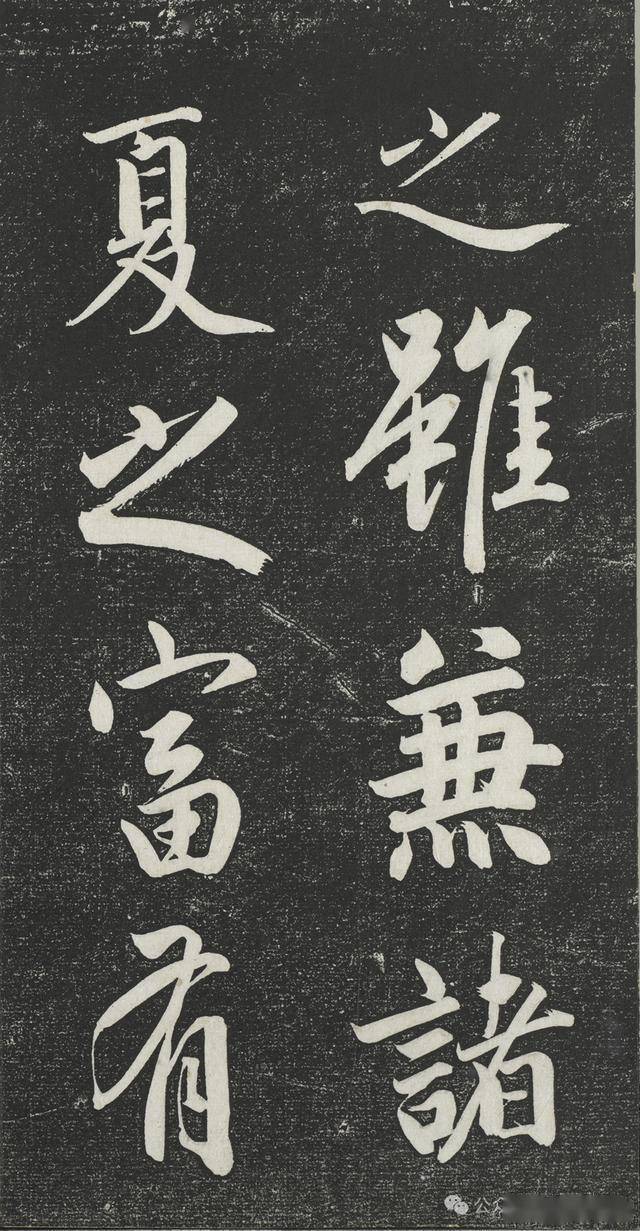 之雖蕪諸
夏之富有
公